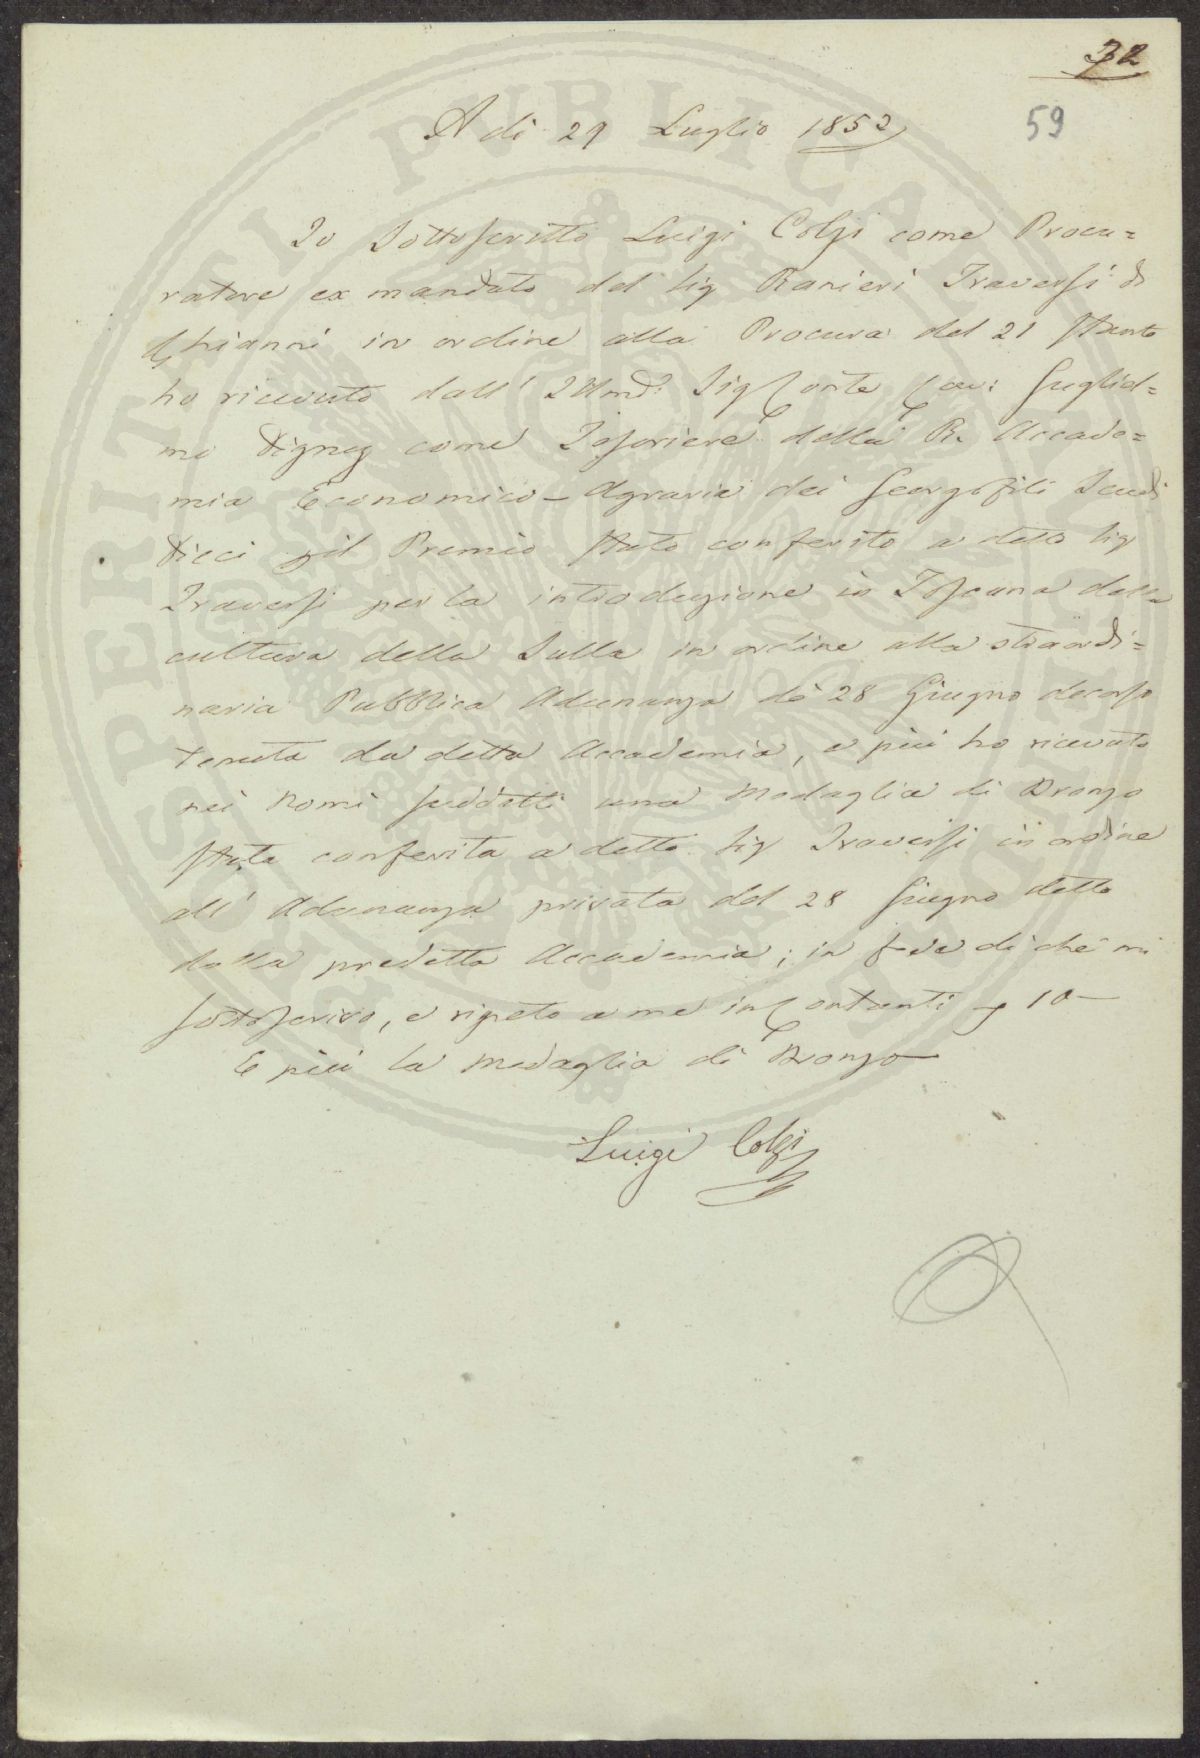 32
59
A dì 29 Luglio 1852
Io Sottoscritto Luigi Colzi come Procu=
ratore ex mandato del Sig Ranieri Traversi di
Ghianni in ordine alla Procura del 21 Stante
ho ricevuto dall' Illmo. Sig Conte Cav: Gugliel=
mo Digny come Tesoriere della R. Accade=
mia Economico-Agraria dei Georgofili Scudi
Dieci pil Premio Stato conferito a detto Sig
Traversi per la introduzione in Toscana della
cultura della Sulla in ordine alla straordi=
naria Pubblica Adunanza de 28 Giugno decorso
tenuta da detta Accademia, e più ho ricevuto
nei Nomi suddetti una Medaglia di Bronzo
Stata conferita a detto Sig Traversi in ordine
all' Adunanza privata del 28 Giugno detto
dalla predetta Accademia; in fede di che mi
sottoscrivo, e ripeto a me in Contanti 10 —
E più la Medaglia di Bronzo —
Luigi Colzi
PROSPERITATI PUBLICAE AUGENDAE